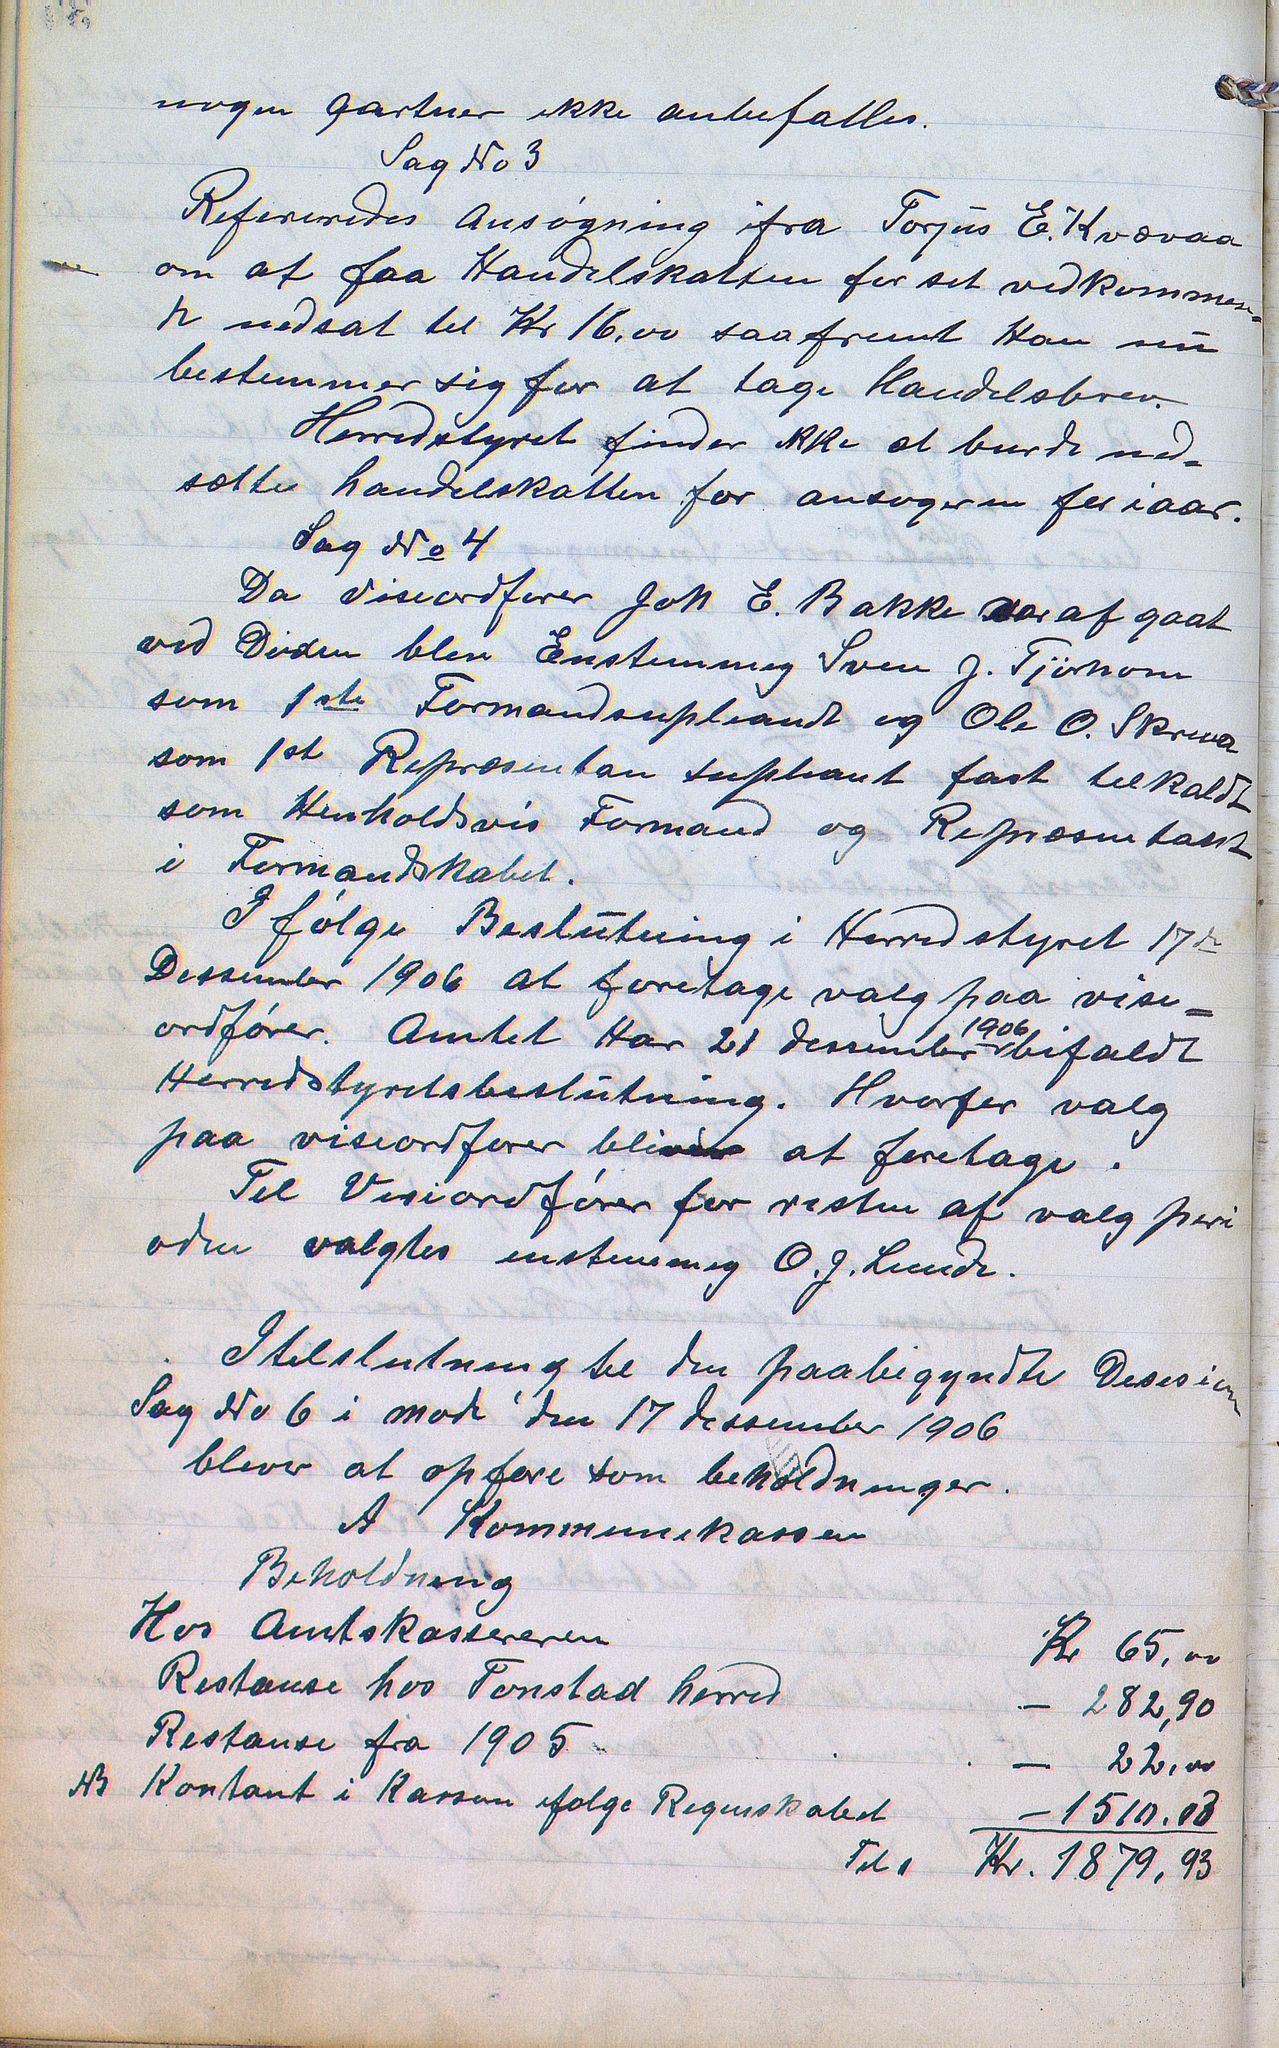 nogen Gartner ikke anbefalles.
Sag No 3
Refereredes Ansøgning ifra Torjus E. Kvævaa
om at faa Handelskatten for sit vedkommen=
de nedsat til Kr 16,00 saafremt Han nu
bestemmer sig for at tage Handelsbrev.
Herredstyret finder ikke at burde ned-
sætte handelskatten for ansøgeren for iaar.
Sag No 4
Da viseordfører Joh E. Bakke var afgaat
ved Døden blev Enstemmig Sven J. Tjørhom
som 1ste Formandsupleandt og Ole O. Skreaa
som 1st Repræsentan supleant fast tilkaldt
som Henholdsvis Formand og Repræsentant
i Formandskabet.
I følge Beslutning i Herredstyret 17de
Dessember 1906 at foretage valg paa vise=
ordfører. Amtet Har 21 dessember 1906 bifaldt
Herredstyretsbeslutning. Hvorfor valg
paa viseordfører bliver at foretage.
Til Viseordfører for resten af valg peri
oden valgtes enstemmig O. J. Lunde.
I tilslutning til den paabegyndte Desesion
Sag No 6 i møde den 17 dessember 1906
blever at opføre som beholdninger.
A Kommunekassen
Beholdning
Hos Amtskassereren Kr 65,00
Restanse hos Tonstad herred — 282,90
Restanse fra 1905 — 22,00
NB Kontant i Kassen ifølge Regnskabet — 1510.03
Tils Kr. 1879,93